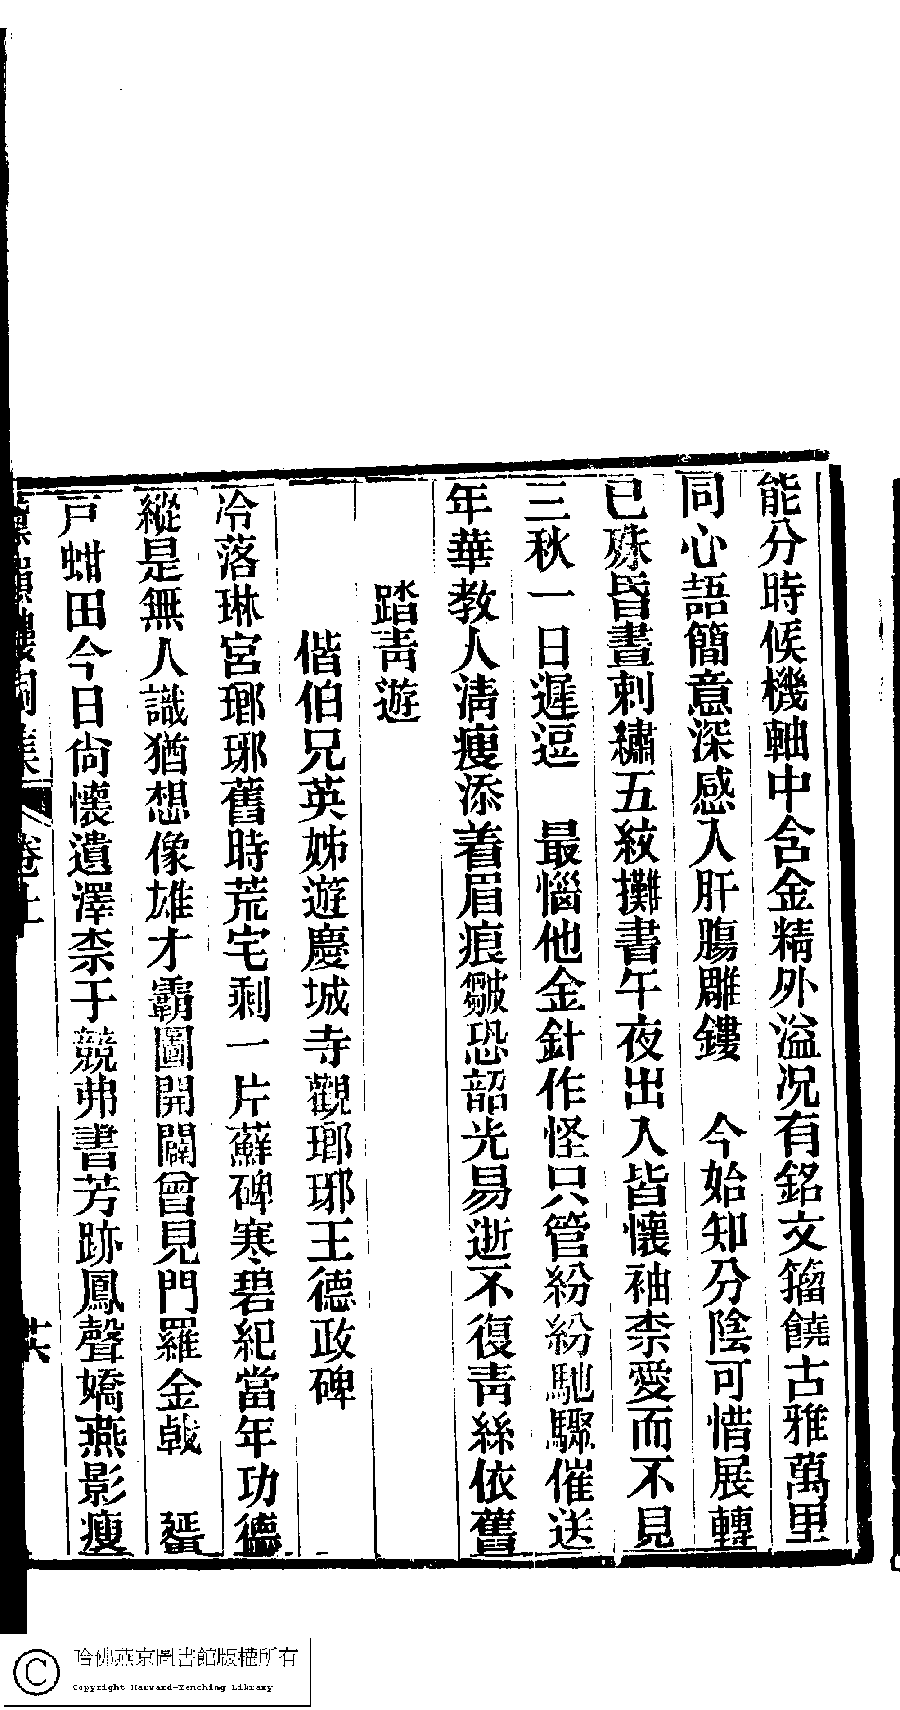 能分時候機軸中含金精外溢况有銘文籀饒古雅萬里
同心語簡意深感人肝腸雕鏤　今始知分陰可惜展轉
已殊昏晝刺繡五紋攤書午夜出入皆懷袖柰愛而不見
三秋一日遲逗　最惱他金針作怪只管紛紛馳驟催送
年華教人淸瘦添着眉痕皺恐韶光易逝不復靑絲依舊
踏靑遊
偕伯兄英姊遊慶城寺觀瑯琊王德政碑
冷落琳宮瑯琊舊時荒宅剩一片蘚碑寒碧紀當年功德
縱是無人識猶想像雄才霸圖開闢曾見門羅金戟　蜑
戸蚶田今日尙懷遺澤柰于兢弗書芳跡鳳聲嬌燕影瘦
詞集　卷上　六
哈佛燕京圖書館版權所有
Copyright Harvard-Yenching Library